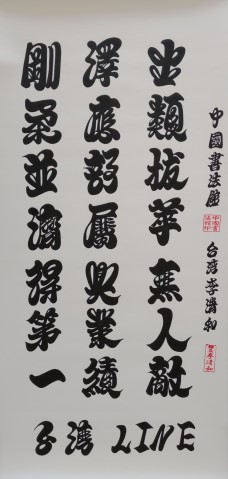 出類拔萃無人敵
澤應厲業績
剛柔並濟得第一
中國書法館 台灣李清和
台灣 LINE